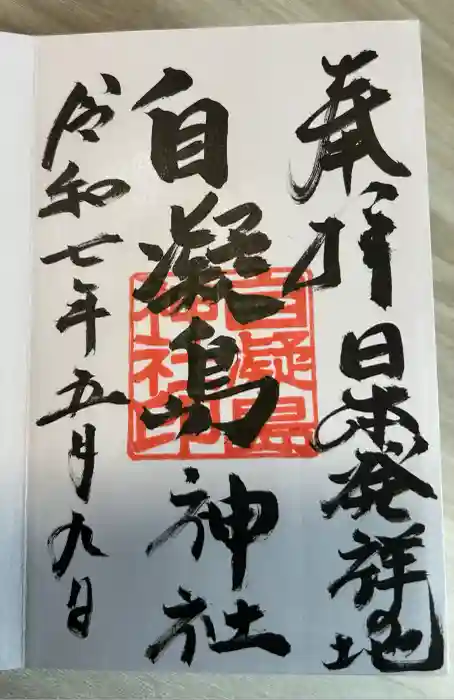 奉拝 日本発祥地
自凝島神社
自凝島神社印
令和七年五月九日